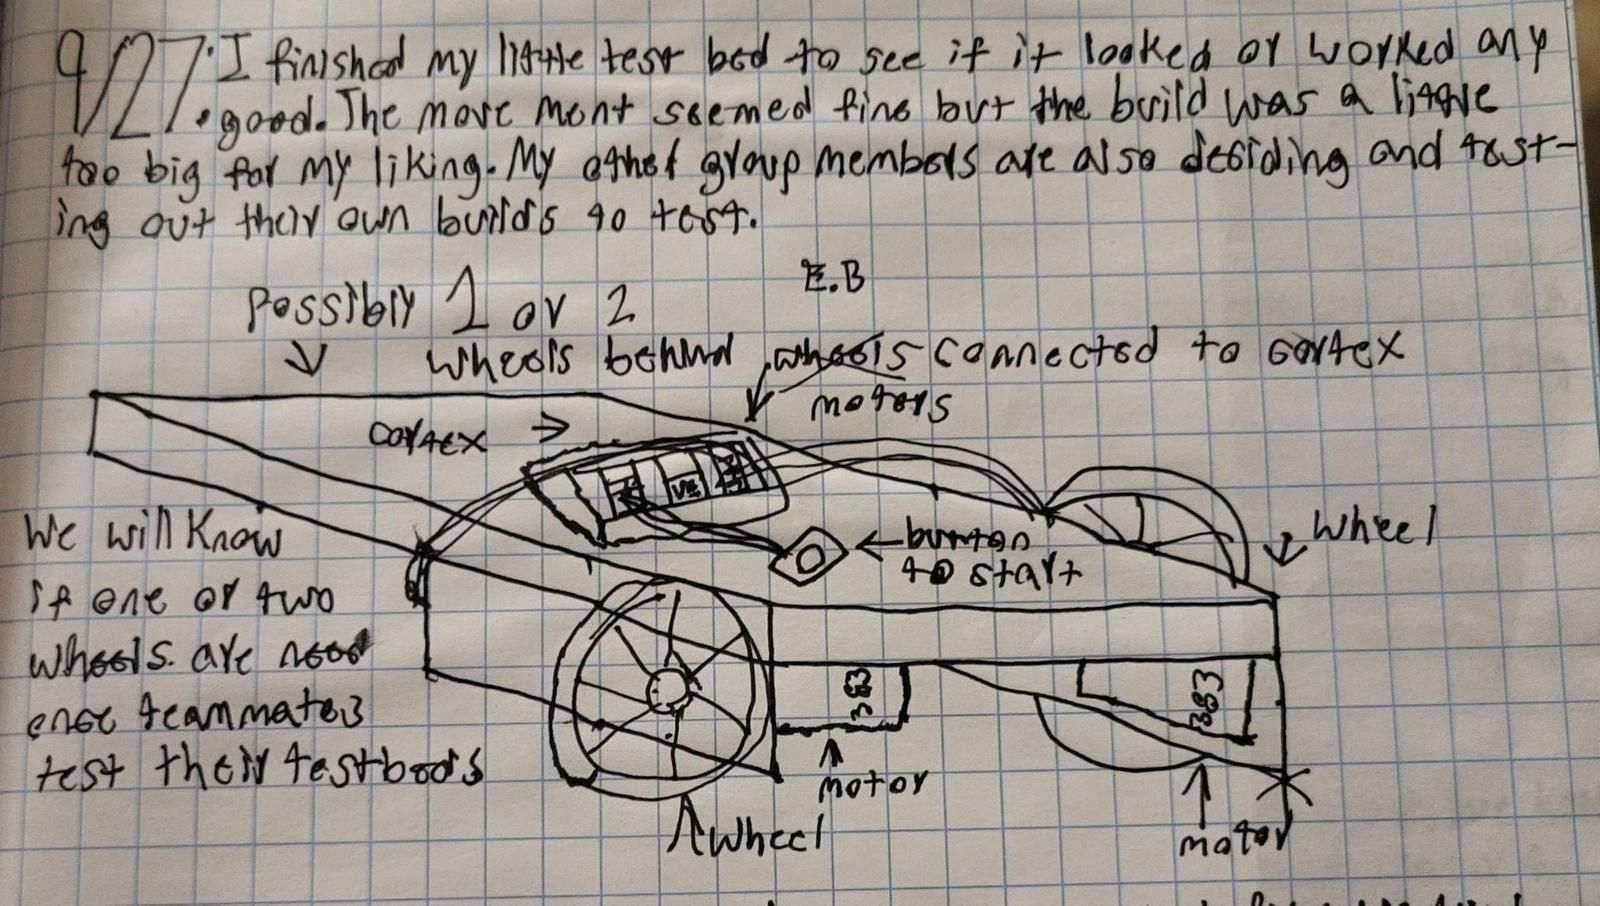 9/27: I finished my little test bed to see if it looked or worked any
good. The move ment seemed fine but the build was a little
too big for my liking. My other group members are also deciding and test-
ing out their own builds to test.
E.B
Possibly 1 or 2
wheels behind
wheels connected to cortex
motors
cortex →
VE
← button
to start
Wheel
We will know
if one or two
wheels are need
once teammates
test their testbeds
393
393
motor
motor
Wheel